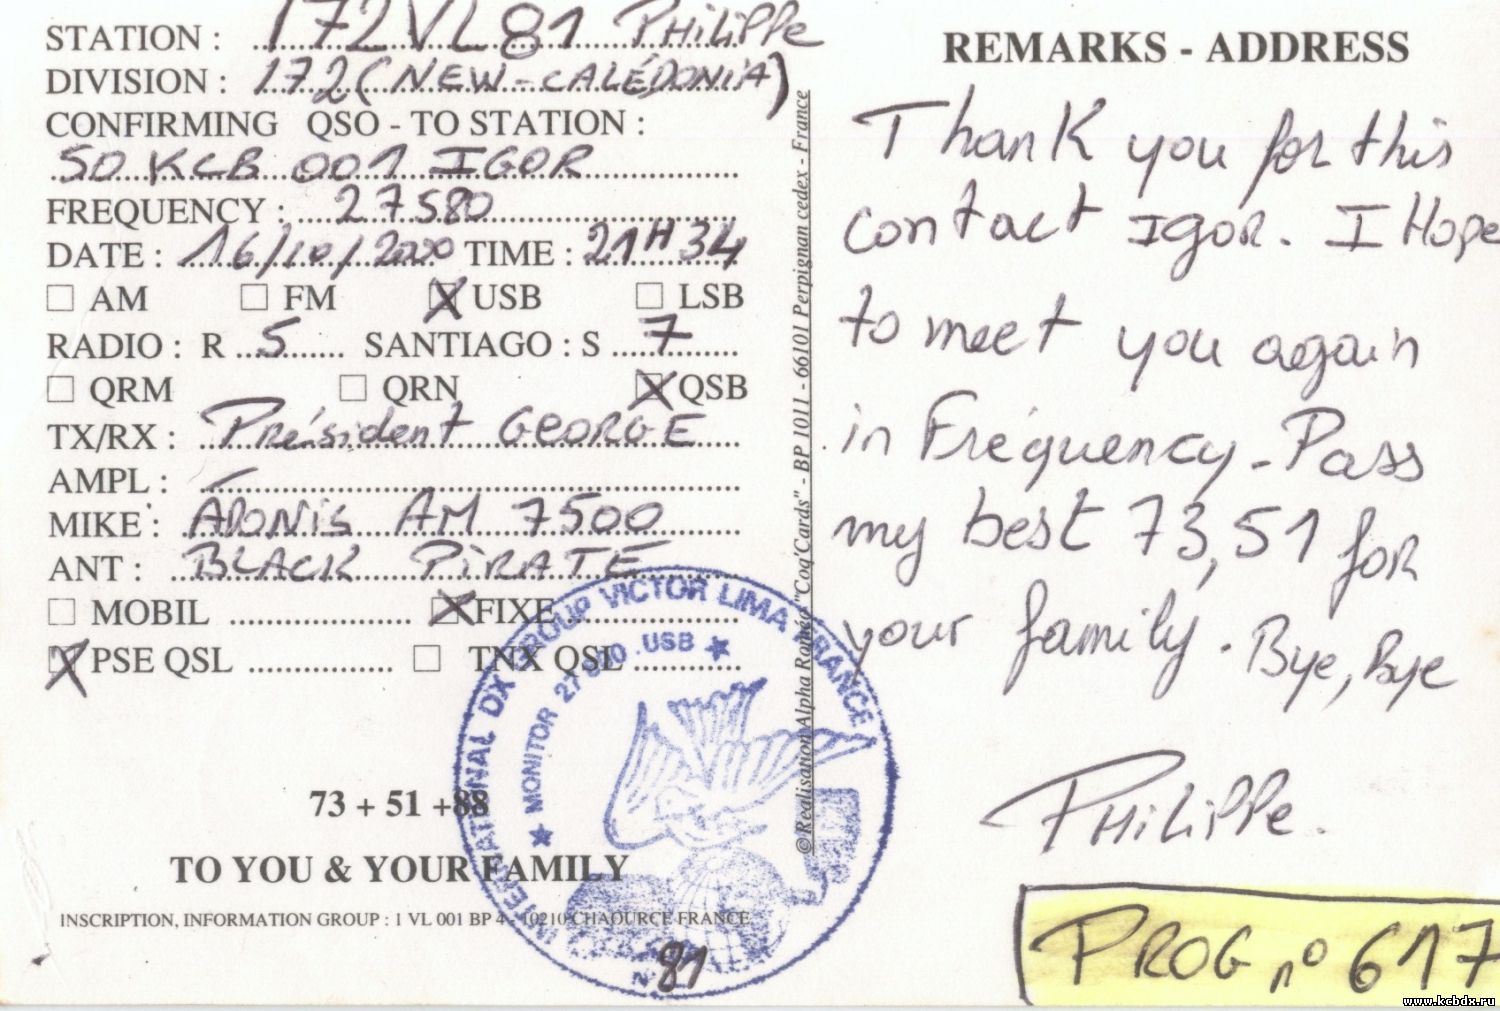 STATION : 172VL81 PHiLiPPe
DIVISION : 172 (NEW-CALÉDONiA)
CONFIRMING QSO - TO STATION :
50 KCB 001 IGOR
FREQUENCY : 27580
DATE : 16/10/2000 TIME : 21H34
AM FM USB LSB
RADIO : R 5 SANTIAGO : S 7
QRM QRN QSB
TX/RX : Président GEORGE
AMPL : -
MIKE : ADONIS AM 7500
ANT : BLACK PiRATE
MOBIL FIXE
PSE QSL TNX QSL
73 + 51 +88
TO YOU & YOUR FAMILY
INSCRIPTION, INFORMATION GROUP : 1 VL 001 BP 4 - 10210 CHAOURCE FRANCE
INTERNATIONAL DX GROUP VICTOR LIMA FRANCE
★ MONITOR 27 USB ★
N 81
©Realisation Alpha Roméo "Coq'Cards" - BP 1011 - 66101 Perpignan cedex - France
REMARKS - ADDRESS
Thank you for this
contact Igor. I Hope
to meet you again
in Fréquency - Pass
my best 73, 51 for
your family. Bye, Bye
PHiLiPPe.
PROG n° 617
www.kcbdx.ru